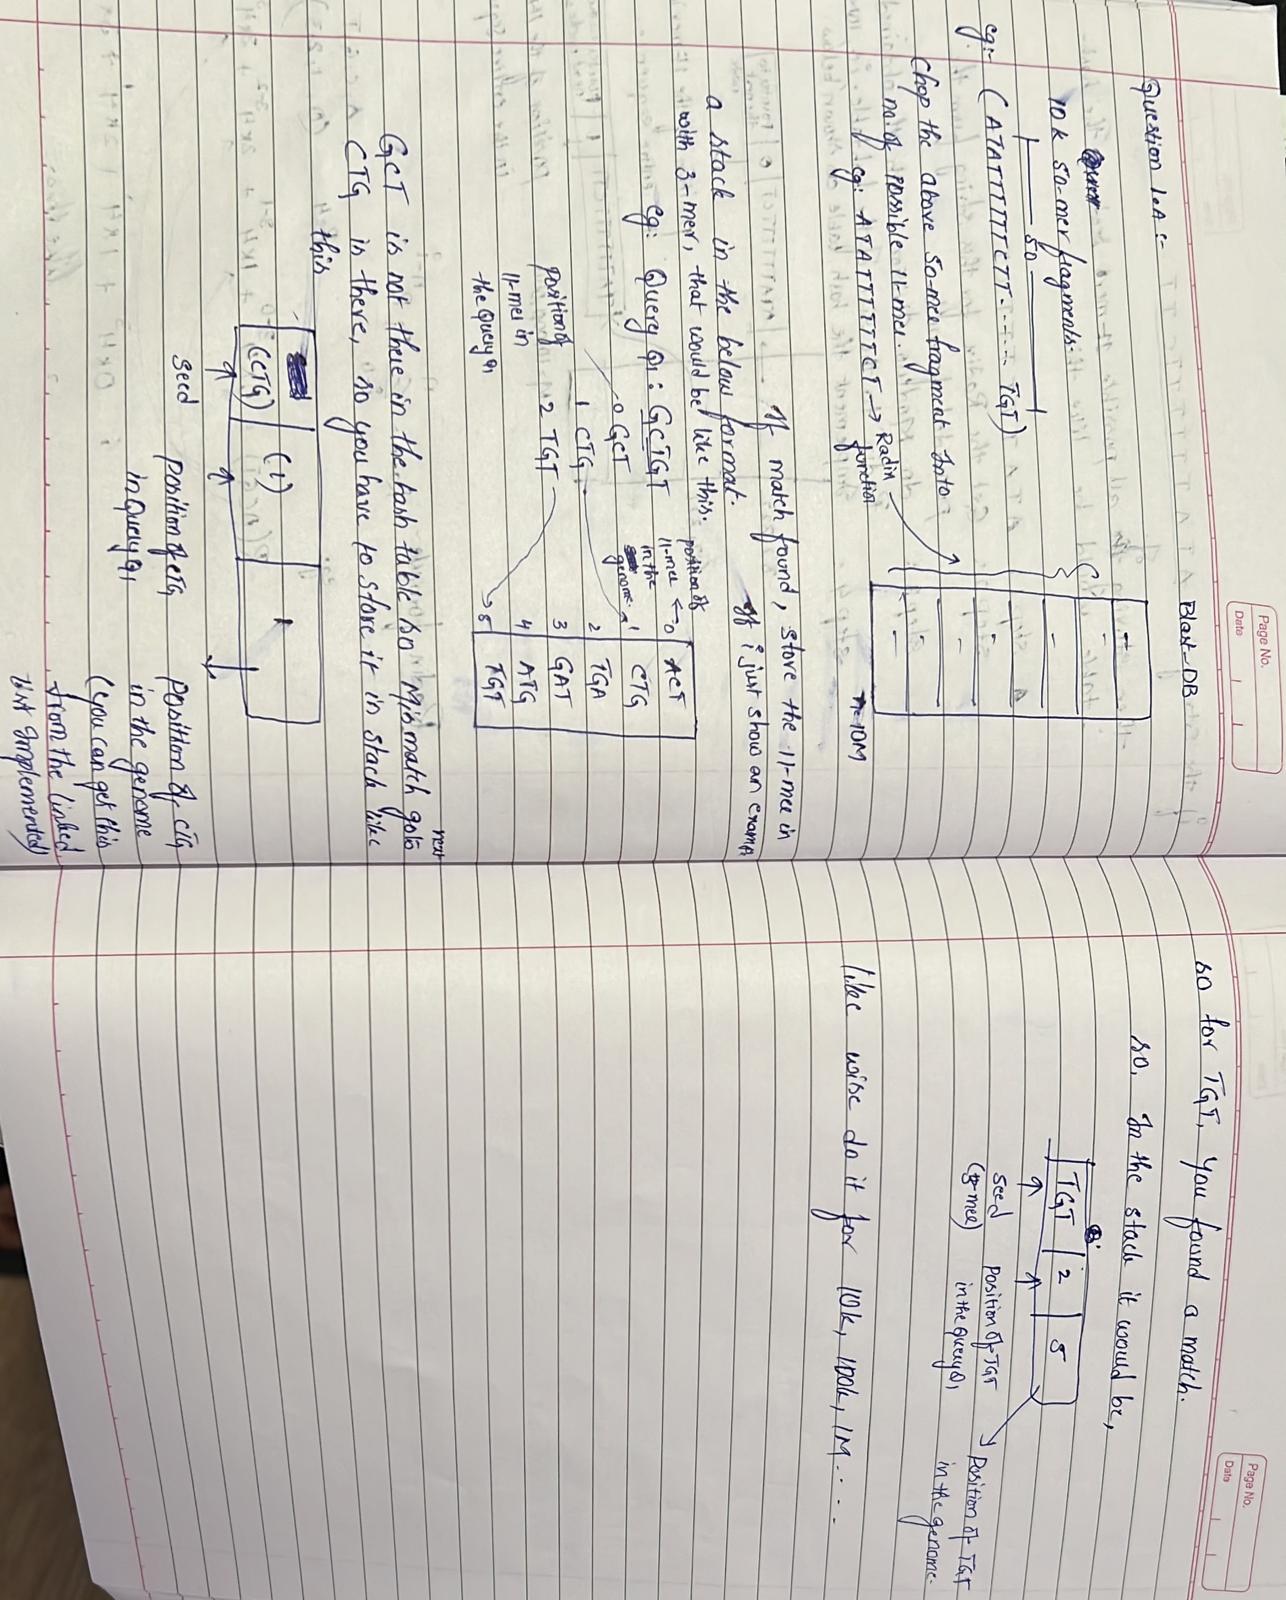 Page No.
Date
Blast-DB
Question 1.A :-
10 k 50-mer fragments.
50
eg:- (ATATTTTTTCTT------ TGT)
Chop the above 50-mer fragment Into
no. of possible 11-mer.
eg: ATATTTTTTCT → Radix
function
n=10M
If match found, store the 11-mer in
a stack in the below format. If i just show an example
with 3-mer, that would be like this.
eg: Query Q1 : GCTGT
0 GCT
1 CTG
2 TGT
position of
11-mer in
the Query Q1
position of
11-mer
in the
genome
0 ACT
1 CTG
2 TGA
3 GAT
4 ATG
5 TGT
GCT is not there in the hash table so Mismatch goto next
CTG is there, so you have to store it in stack like
this
(CTG) (1) 1
seed
position of CTG
in Query Q1
position of CTG
in the genome
(you can get this
from the linked
list Implemented)
Page No.
Date
so for TGT, you found a match.
so, In the stack it would be,
TGT 2 5
seed
(3-mer)
position of TGT
in the Query Q1
Position of TGT
in the genome.
like wise do it for 10k, 100k, 1M....